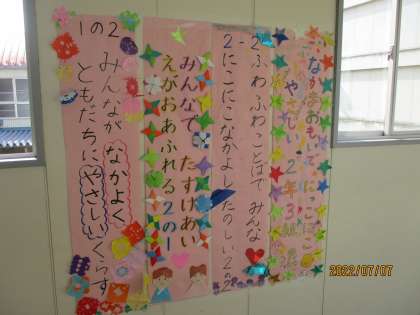 なかまおもいで にこにこ
やさしい 2年3組
2-2
ふわふわことばで みんな
にこにこなかよしたのしい2の2
みんなで たすけあい
えがおあふれる2の1
1の2
みんなが なかよく
ともだちに やさしいくらす
2022/07/07